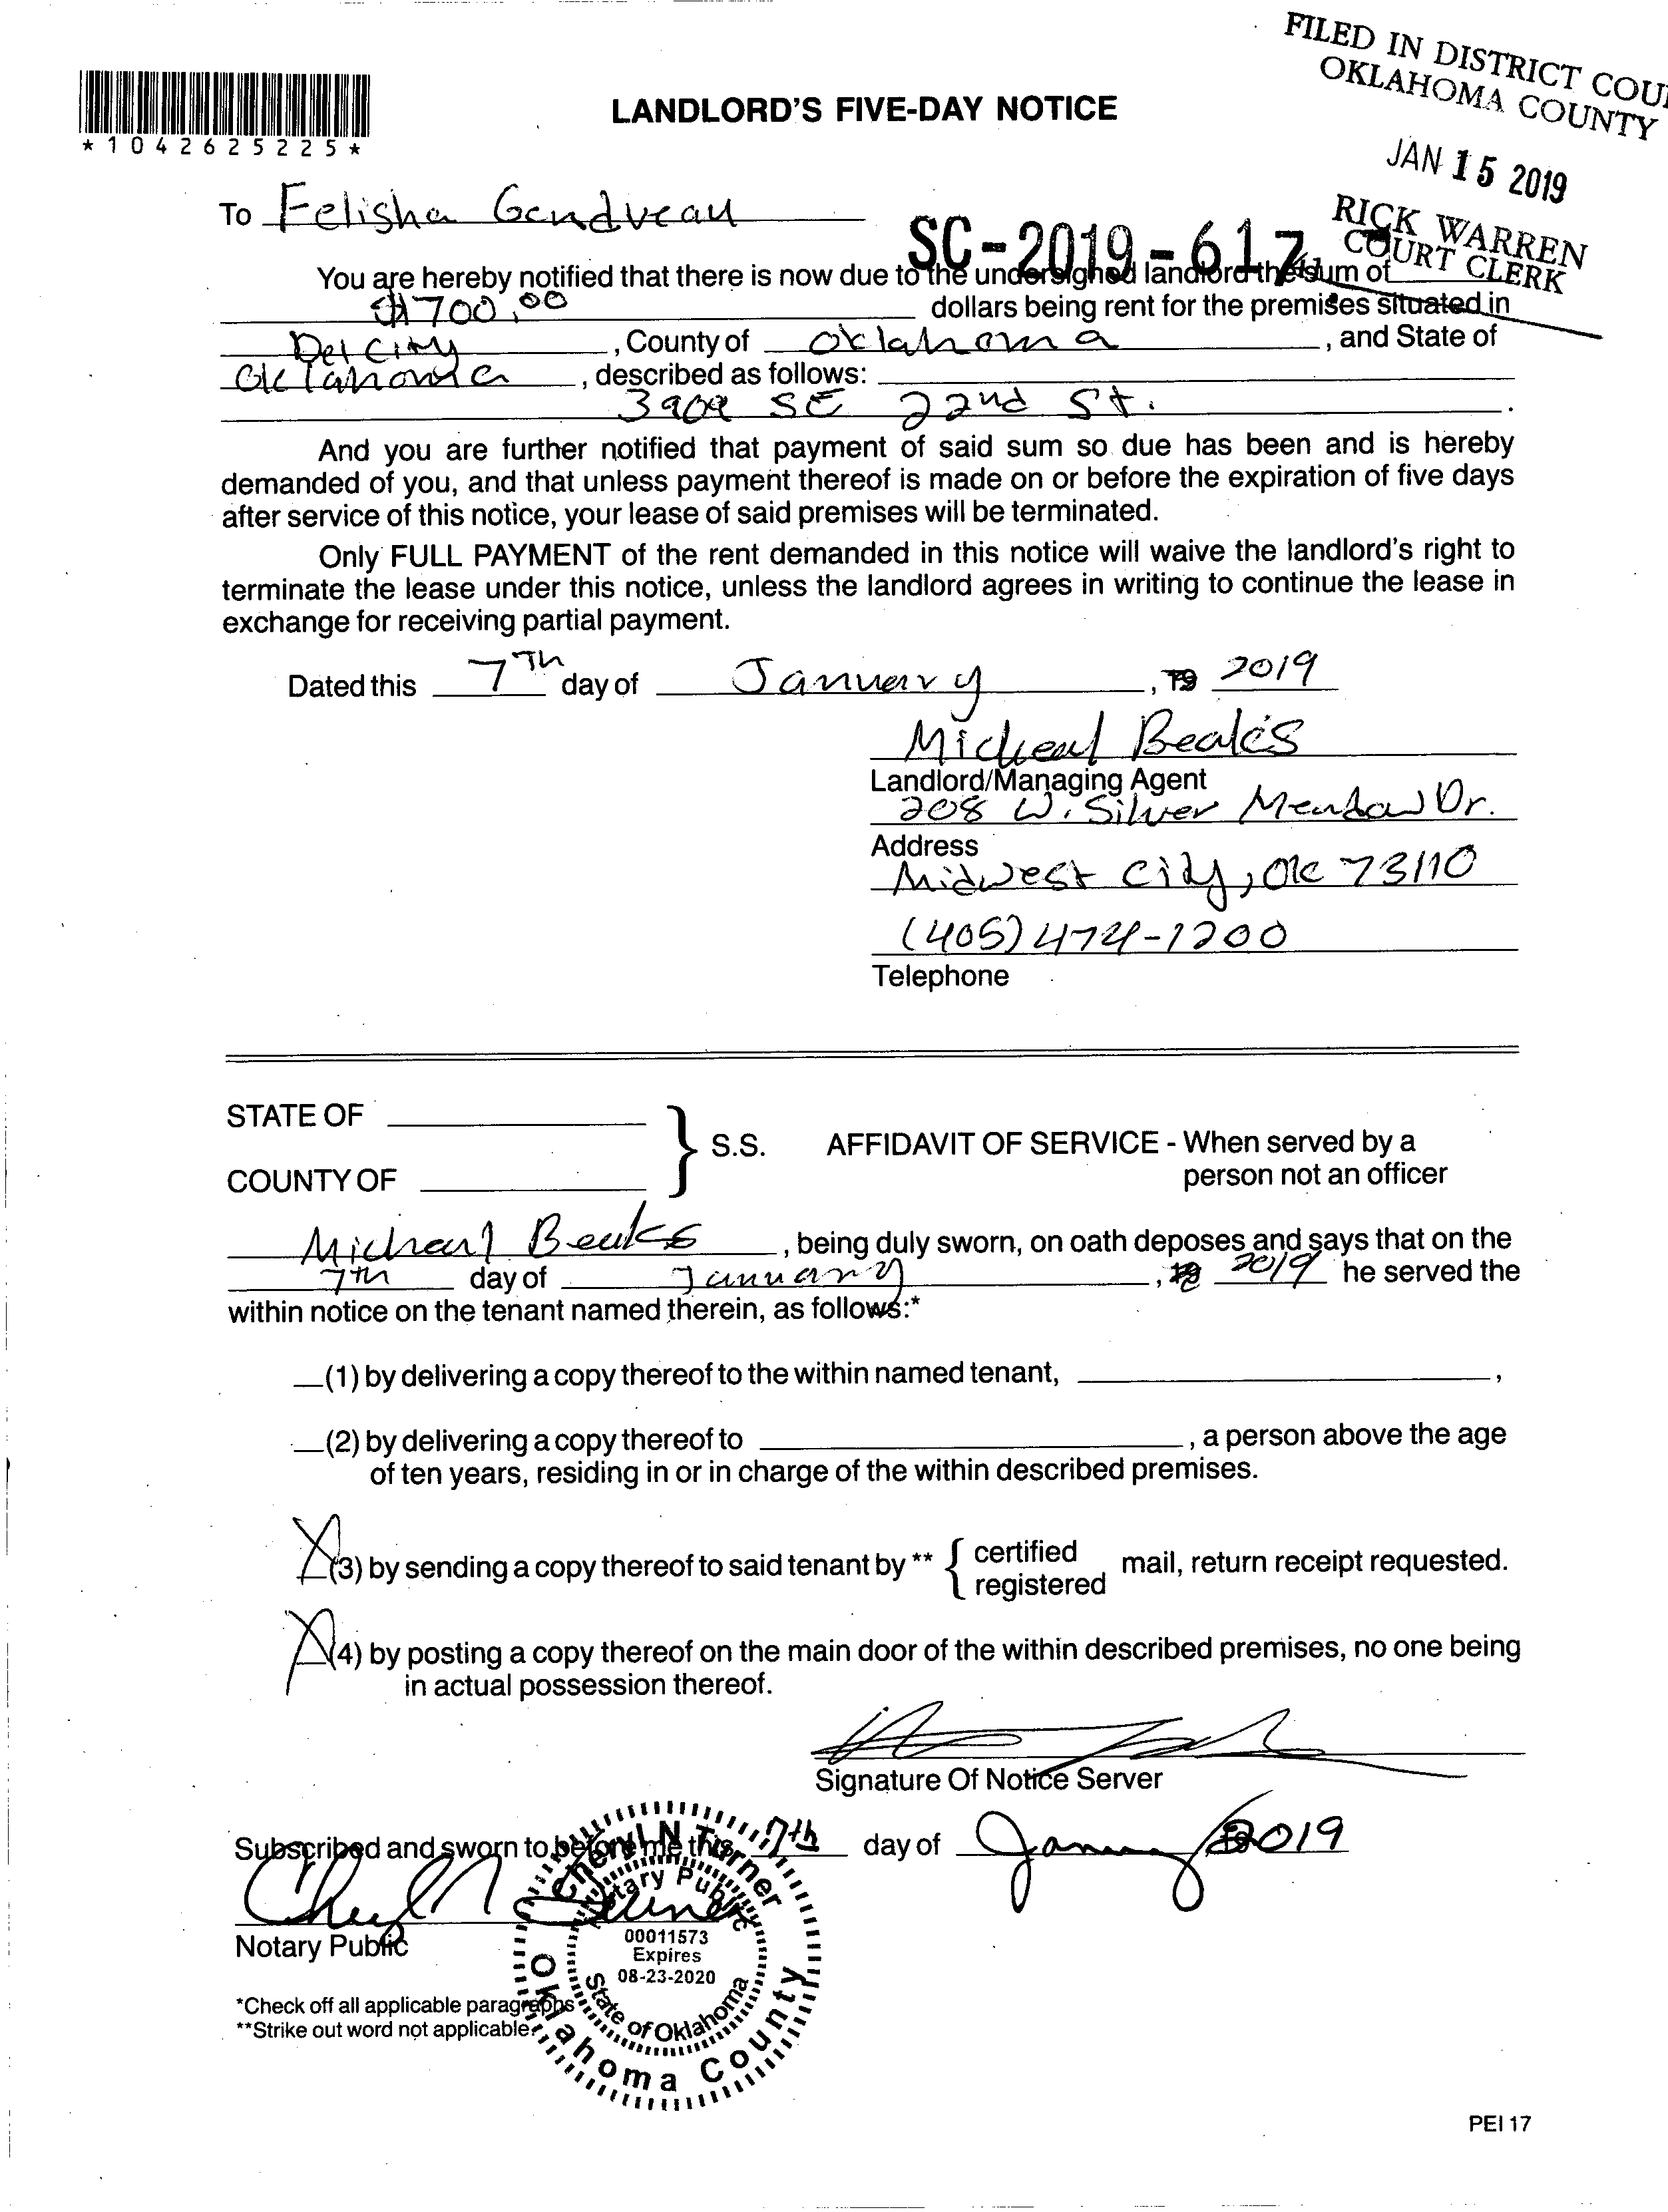 FILED IN DISTRICT COU
OKLAHOMA COUNTY
JAN 15 2019
RICK WARREN
COURT CLERK
*1042625225*
LANDLORD'S FIVE-DAY NOTICE
To Felisha Gendveau
SC-2019-617
You are hereby notified that there is now due to the undersigned landlord the sum of
$700.00 dollars being rent for the premises situated in
Del City, County of Oklahoma, and State of
Oklahoma, described as follows:
3909 SE 22nd St.
And you are further notified that payment of said sum so due has been and is hereby
demanded of you, and that unless payment thereof is made on or before the expiration of five days
after service of this notice, your lease of said premises will be terminated.
Only FULL PAYMENT of the rent demanded in this notice will waive the landlord's right to
terminate the lease under this notice, unless the landlord agrees in writing to continue the lease in
exchange for receiving partial payment.
Dated this 7Th day of January, 19 2019
Micheal Beakes
Landlord/Managing Agent
208 W. Silver Meadow Dr.
Address
Midwest City, OK 73110
(405) 474-1200
Telephone
STATE OF
COUNTY OF
} S.S. AFFIDAVIT OF SERVICE - When served by a
person not an officer
Michael Beakes, being duly sworn, on oath deposes and says that on the
7th day of January, 19 2019 he served the
within notice on the tenant named therein, as follows:*
(1) by delivering a copy thereof to the within named tenant, ,
(2) by delivering a copy thereof to , a person above the age
of ten years, residing in or in charge of the within described premises.
X (3) by sending a copy thereof to said tenant by ** { certified registered mail, return receipt requested.
X (4) by posting a copy thereof on the main door of the within described premises, no one being
in actual possession thereof.
Signature Of Notice Server
Subscribed and sworn to before me this 7th day of January 2019
Cheryl N Turner
Notary Public
Cheryl N Turner
Notary Public
00011573
Expires
08-23-2020
State of Oklahoma
Oklahoma County
*Check off all applicable paragraphs
**Strike out word not applicable.
PEI 17